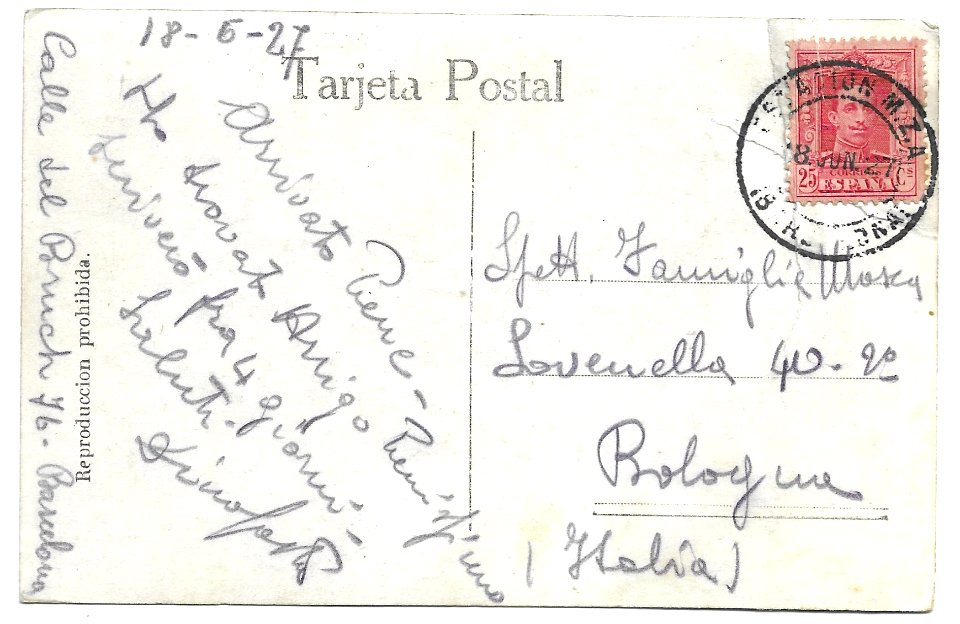 18-6-27
Tarjeta Postal
Arrivato bene - benissimo
Ho trovato Arrigo
scriverò fra 4 giorni -
Saluti.
Calle del Bruch 76 - Barcelona
Reproduccion prohibida.
ESTACION M.Z.A.
18.JUN.27
CORREOS
25 ESPAÑA Cs
Spett. Famiglia Mosca
40-2º
Bologna
(Italia)